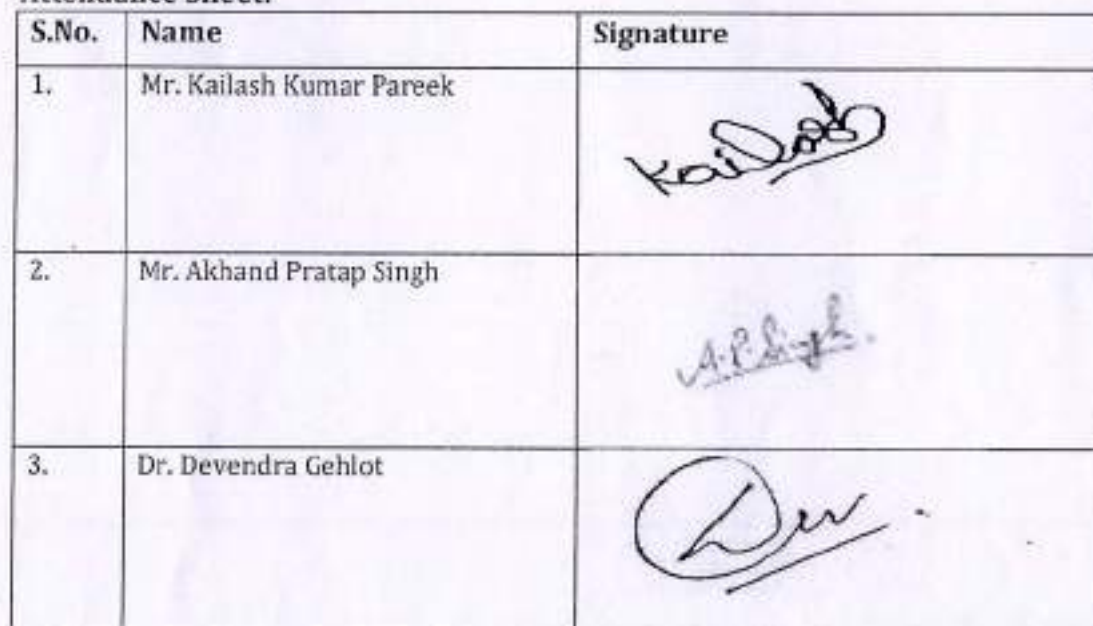 Attendance Sheet:
S.No. Name Signature
1. Mr. Kailash Kumar Pareek
Kailash
2. Mr. Akhand Pratap Singh
A.P. Singh.
3. Dr. Devendra Gehlot
Dev.